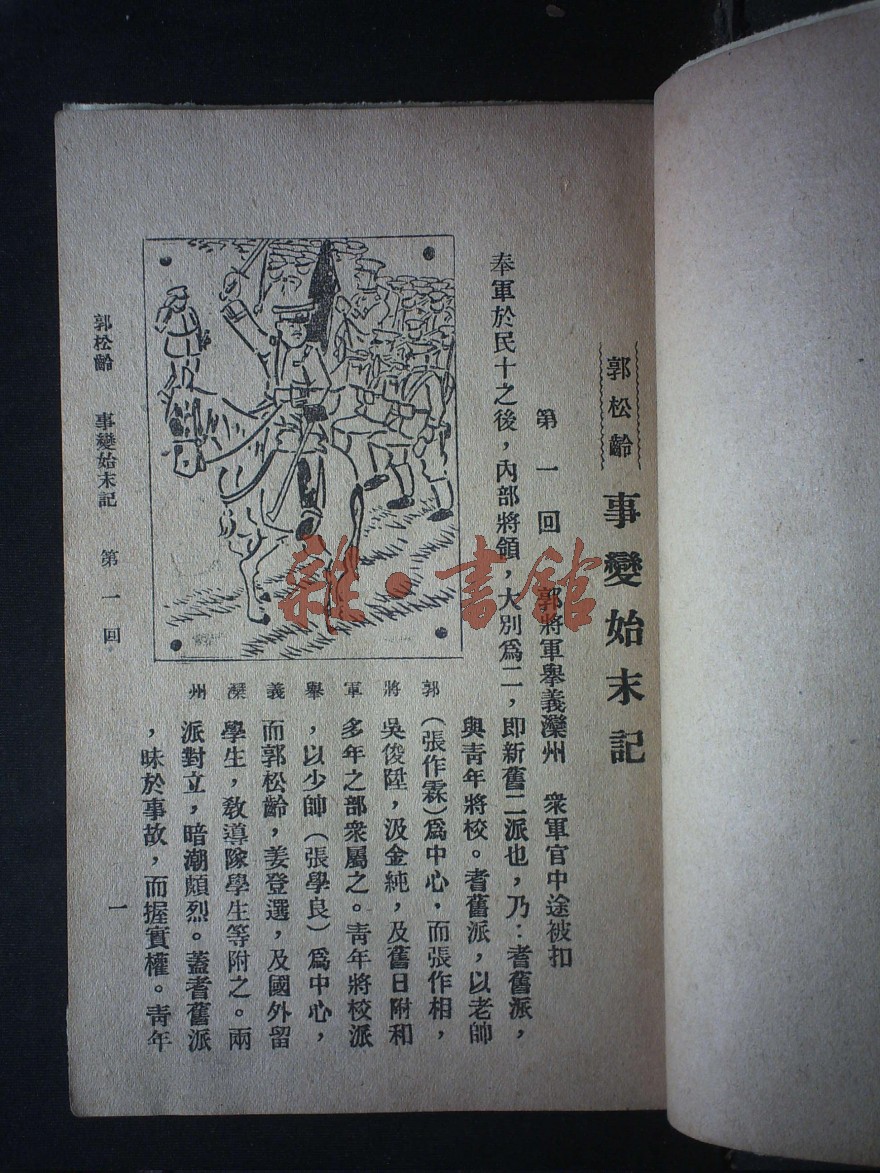 郭松齡 事變始末記
第一回 郭將軍舉義灤州 衆軍官中途被扣
奉軍於民十之後，內部將領，大別爲二，即新舊二派也，乃：耆舊派，
與青年將校。耆舊派，以老帥
（張作霖）爲中心，而張作相，
吳俊陞，汲金純，及舊日附和
多年之部衆屬之。青年將校派
，以少帥（張學良）爲中心，
而郭松齡，姜登選，及國外留
學生，敎導隊學生等附之。兩
派對立，暗潮頗烈。蓋耆舊派
，昧於事故，而握實權。青年
郭將軍舉義灤州
郭松齡 事變始末記 第一回
一
雜·書館